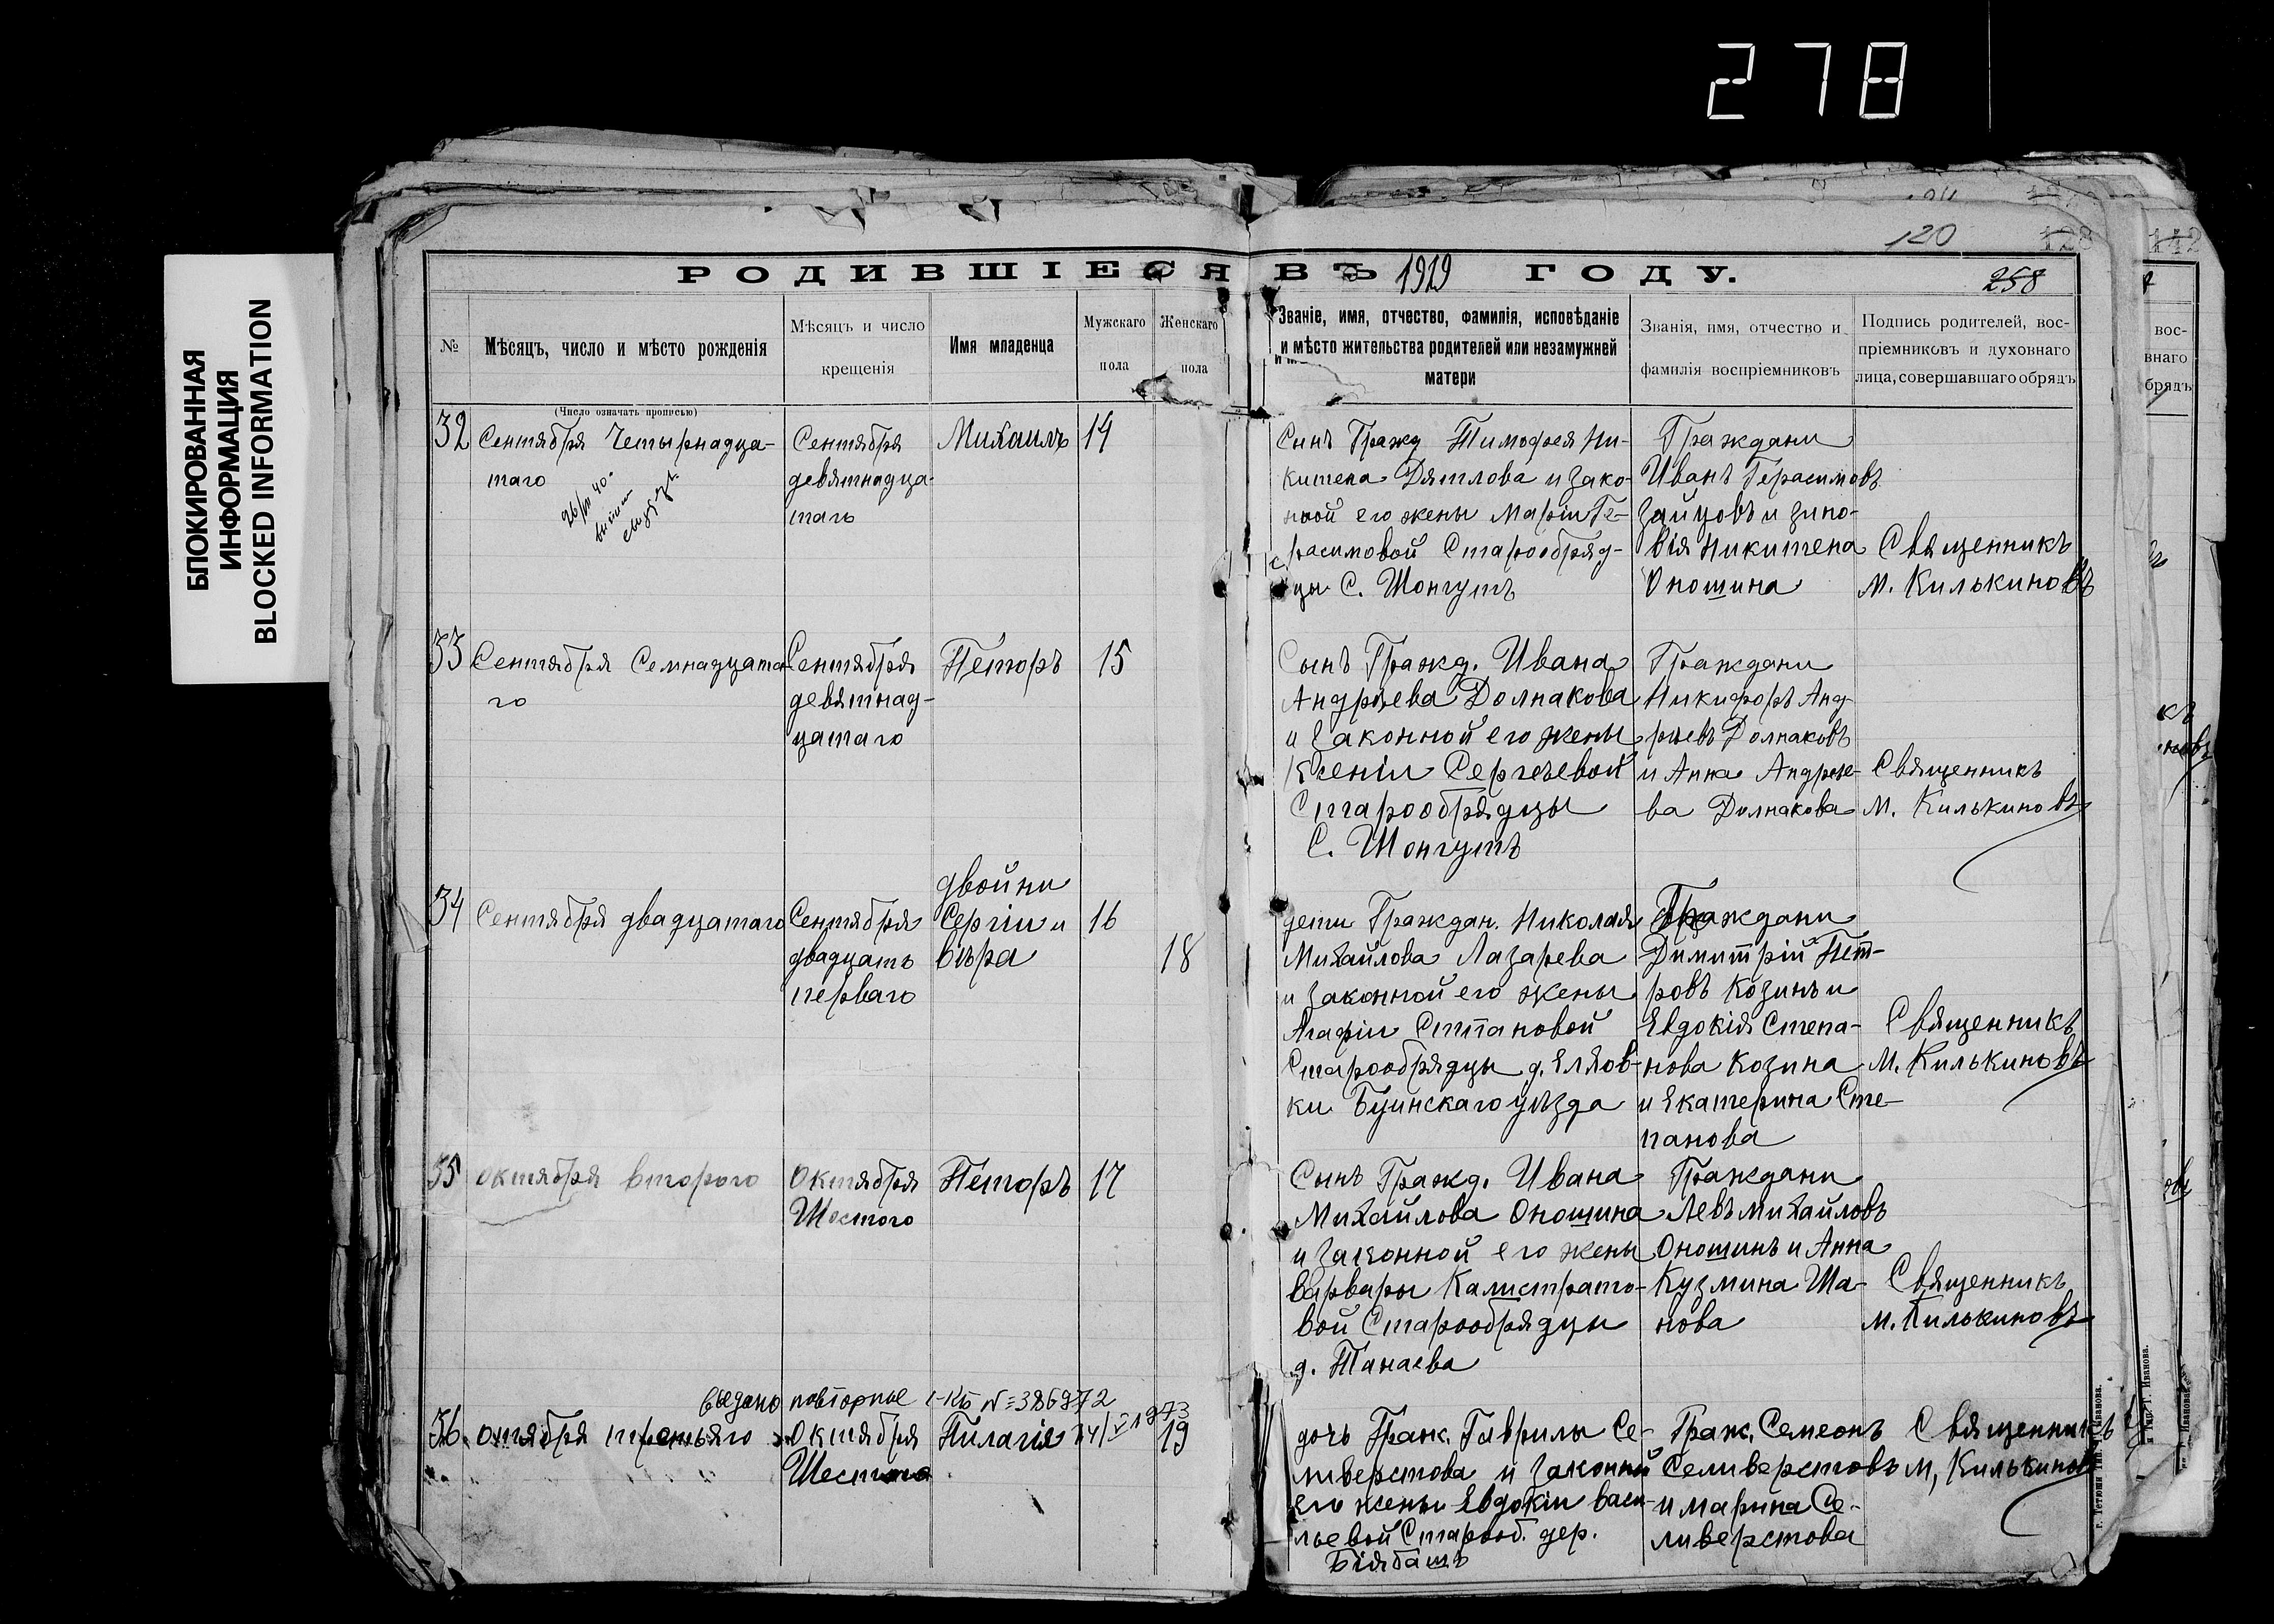 278
БЛОКИРОВАННАЯ
ИНФОРМАЦИЯ
BLOCKED INFORMATION
120
128
142
РОДИВШІЕСЯ ВЪ 1919 ГОДУ.
258
№
Мѣсяцъ, число и мѣсто рожденія
Мѣсяцъ и число
крещенія
Имя младенца
Мужскаго
пола
Женскаго
пола
Званіе, имя, отчество, фамилія, исповѣданіе
и мѣсто жительства родителей или незамужней
матери
Званія, имя, отчество и
фамилія воспріемниковъ
Подпись родителей, вос-
пріемниковъ и духовнаго
лица, совершавшаго обрядъ
вос-
внаго
брядъ
(Число означать прописью)
32
Сентября Четырнадца-
таго
26/III 40.
Сентября
девятнадца-
таго
Михаилъ
14
Сынъ Гражд Тимофея Ни-
китена Дятлова и зако-
нной его жены Маріи Ге-
расимовой Старообряд-
цы С. Шонгутъ
Граждани
Иванъ Герасимовъ
Зайцовъ и Зино-
вія Никитена
Оношина
Священникъ
М. Килькиновъ
33
Сентября Семнадцата
го
Сентября
девятнад-
цатаго
Петоръ
15
Сынъ Гражд. Ивана
Андрѣева Долнакова
и Законной его жены
Ксеніи Сергѣевой
Старообрядцы
С. Шонгутъ
Граждани
Никифоръ Анд-
рѣевъ Долнаковъ
и Анна Андрѣе-
ва Долнакова
Священникъ
М. Килькиновъ
34
Сентября двадцатаго
Сентября
двадцать
перваго
двойни
Сергіи и
вѣра
16
18
дети Граждан. Николая
Михайлова Лазарева
и Законной его жены
Агафіи Стпановой
Старообрядцы д. Еляов-
ки Буинскаго уѣзда
Граждани
Димитрій Пет-
ровъ Козинъ и
Евдокія Степа-
нова Козина
и Екатерина Сте-
панова
Священникъ
М. Килькиновъ
35
Октября второго
Октября
Шестого
Петоръ
17
Сынъ Гражд. Ивана
Михайлова Оношина
и Законной его жены
Варвары Калистрато-
вой Старообрядцы
д. Танаева
Граждани
Левъ Михайловъ
Оношинъ и Анна
Кузмина Ша-
нова
Священникъ
М. Килькиновъ
выдано повторное I-КБ №=386972
36.
Отября третьяго
Октября
Шестого
Пилагія
19
дочь Граж. Гаврилы Се-
ливерстова и Законной
его жены Евдокіи Васи-
льевой Старооб. дер.
Біябашъ
Граж. Семеонъ
Селиверстовъ
и марина Се-
ливерстова
Священникъ
М, Килькинов
г. Тетюши Тип. Иванова.